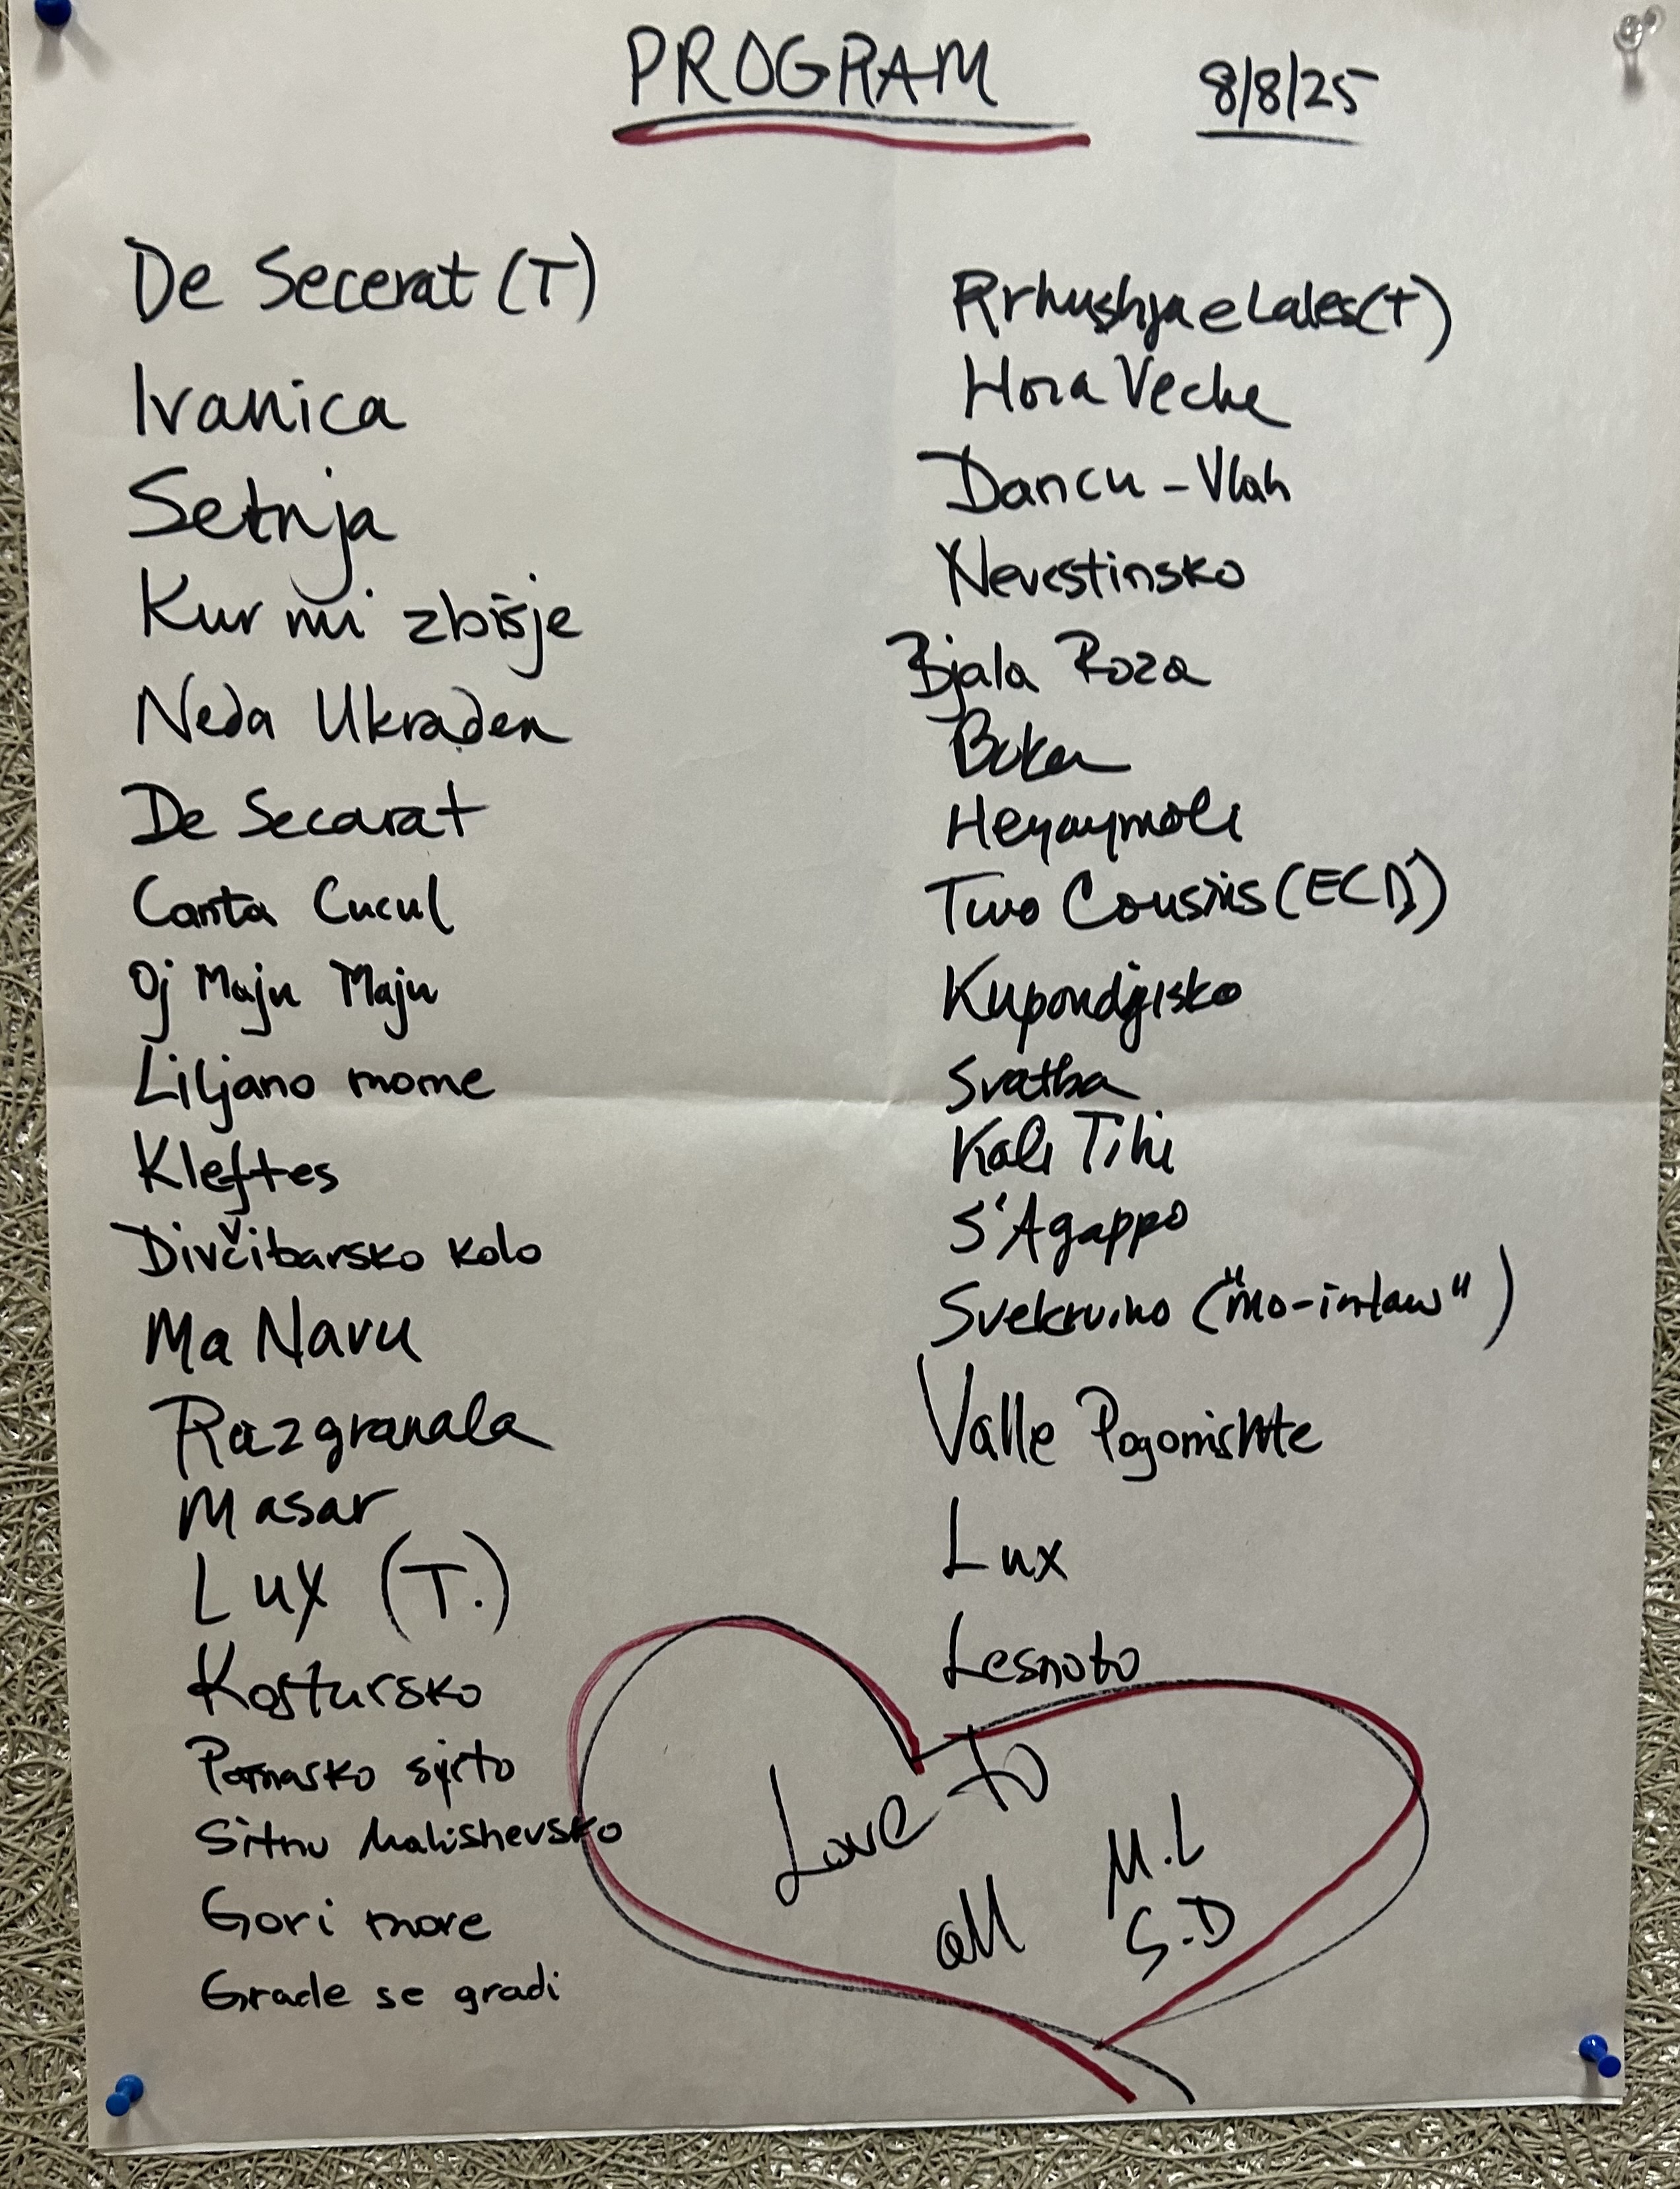 PROGRAM
8/8/25
De Secerat (T)
Ivanica
Setnja
Kur mi zbišje
Neda Ukraden
De Secarat
Canta Cucul
Oj Maju Maju
Liljano mome
Kleftes
Divčibarsko kolo
Ma Navu
Razgranala
Masar
Lux (T.)
Kostursko
syrto
Sitnu Malishevsko
Gori more
Grade se gradi
Rrhushja e Lales (t)
Hora Veche
Dancu - Vlah
Nevestinsko
Bjala Roza
Heyamoli
Two Cousins (ECD)
Kupondgisko
Svatba
Kali Tihi
S'Agappo
Svekrvino ("mo-inlaw")
Valle Pogonishte
Lux
Lesnoto
Love to
all
M.L
S.D